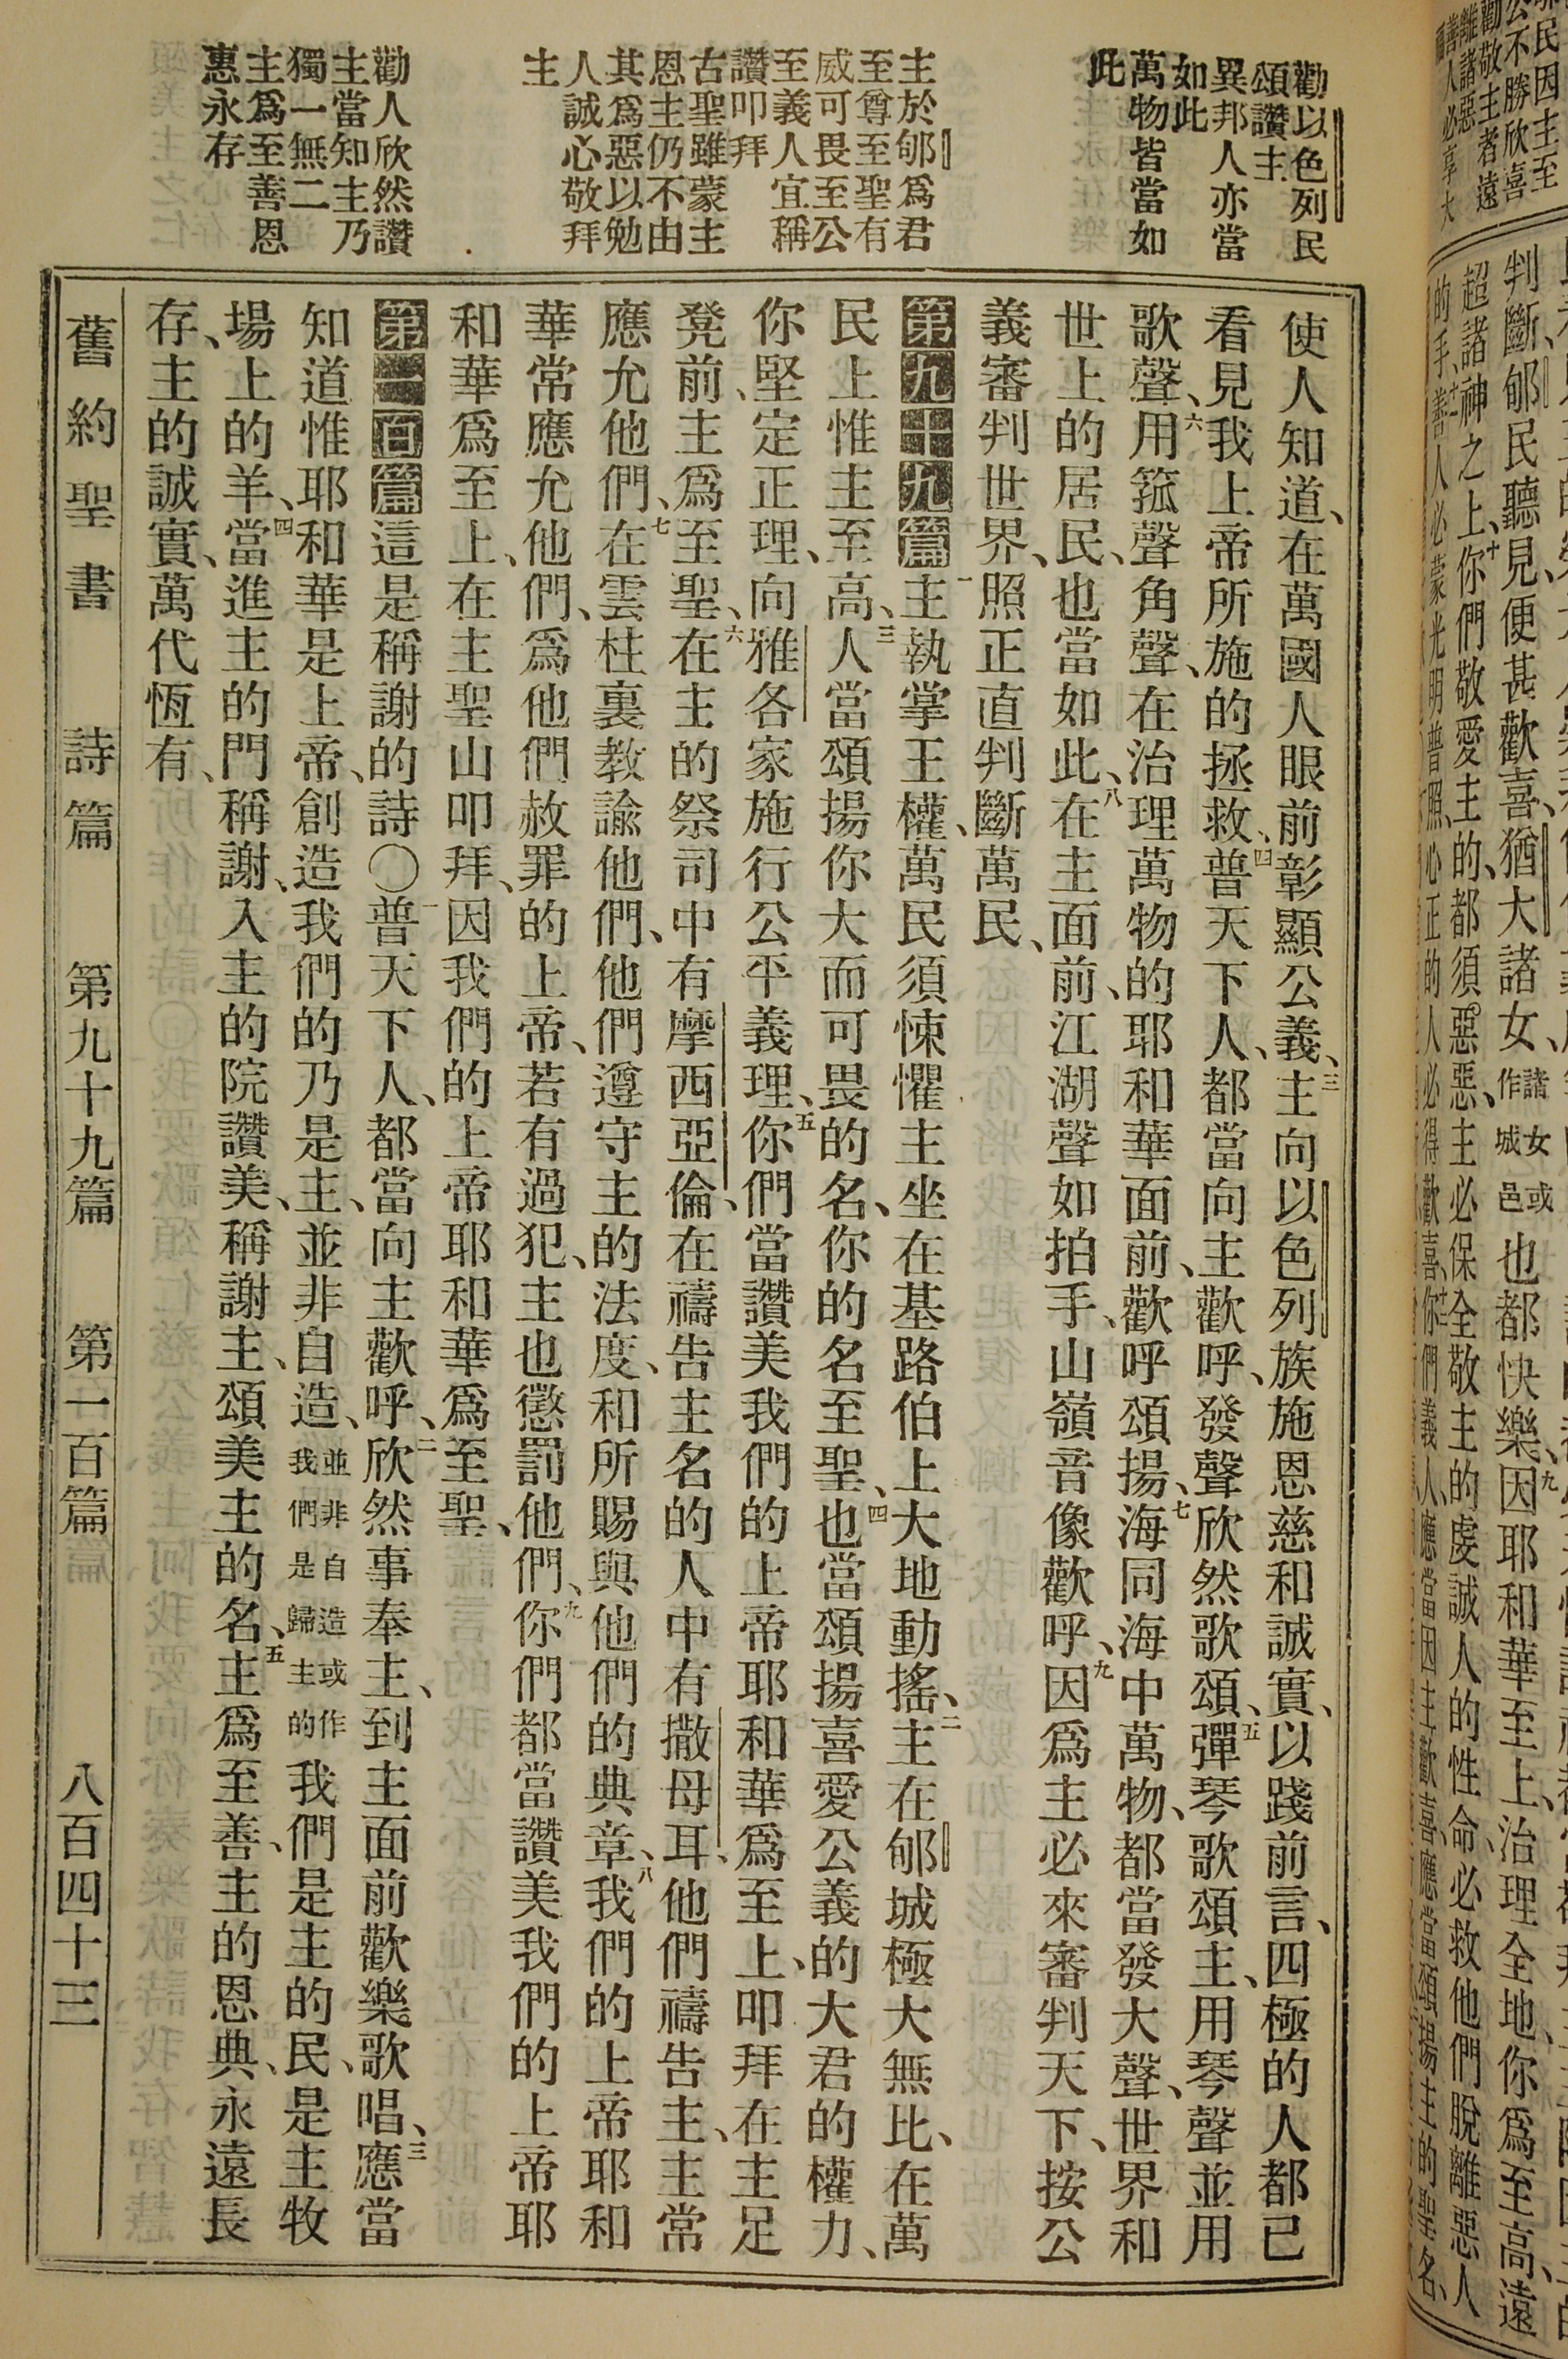 民因主至
公不勝欣喜
勸敬主者遠
離諸惡
善人必享大
判斷、郇民聽見便甚歡喜、猶大諸女、諸女或作城邑也都快樂、九因耶和華至上、治理全地、你爲至高、遠
超諸神之上、十你們敬愛主的、都須惡惡、主必保全敬主的虔誠人的性命、必救他們脫離惡人
的手、十一善人必蒙光明普照、心正的人必得歡喜、十二你們義人、應當因主歡喜、應當頌揚主的聖名、
勸以色列民
頌讚主
異邦人亦當
如此
萬物皆當如
此
主於郇爲君
至尊至聖有
威可畏至公
至義人宜稱
讚叩拜
古聖雖蒙主
恩主仍不由
其爲惡以勉
人誠心敬拜
主
勸人欣然讚
主當知主乃
獨一無二
主爲至善恩
惠永存
使人知道、在萬國人眼前彰顯公義、三主向以色列族施恩慈和誠實、以踐前言、四極的人都已
看見我上帝所施的拯救、四普天下人、都當向主歡呼、發聲欣然歌頌、五彈琴歌頌主、用琴聲並用
歌聲、六用箛聲角聲、在治理萬物的耶和華面前、歡呼頌揚、七海同海中萬物、都當發大聲、世界和
世上的居民、也當如此、八在主面前、江湖聲如拍手、山嶺音像歡呼、九因爲主必來審判天下、按公
義審判世界、照正直判斷萬民、
第九十九篇一主執掌王權、萬民須悚懼主坐在基路伯上大地動搖、二主在郇城極大無比、在萬
民上惟主至高、三人當頌揚你大而可畏的名、你的名至聖、四也當頌揚喜愛公義的大君的權力、
你堅定正理、向雅各家施行公平義理、五你們當讚美我們的上帝耶和華爲至上、叩拜在主足
凳前、主爲至聖、六在主的祭司中有摩西亞倫、在禱告主名的人中有撒母耳、他們禱告主、主常
應允他們、七在雲柱裏教諭他們、他們遵守主的法度、和所賜與他們的典章、八我們的上帝耶和
華常應允他們、爲他們赦罪的上帝、若有過犯、主也懲罰他們、九你們都當讚美我們的上帝耶
和華爲至上、在主聖山叩拜、因我們的上帝耶和華爲至聖、
第一百篇這是稱謝的詩〇一普天下人、都當向主歡呼、二欣然事奉主、到主面前歡樂歌唱、三應當
知道惟耶和華是上帝、創造我們的乃是主、並非自造、並非自造或作我們是歸主的我們是主的民、是主牧
場上的羊、四當進主的門稱謝、入主的院讚美、稱謝主、頌美主的名、五主爲至善、主的恩典、永遠長
存、主的誠實、萬代恆有、
舊約聖書 詩篇 第九十九篇 第一百篇 八百四十三